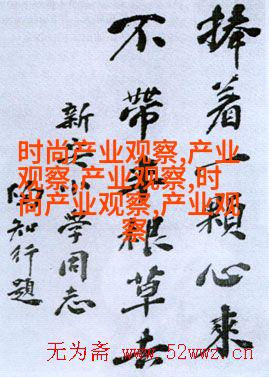 捧着一顆心来
不帶根草去
新安小学同志
陶知行題
时尚产业观察,产业
观察,产业观察,时
尚产业观察,产业观
察
无为斋 www.52wwz.cn